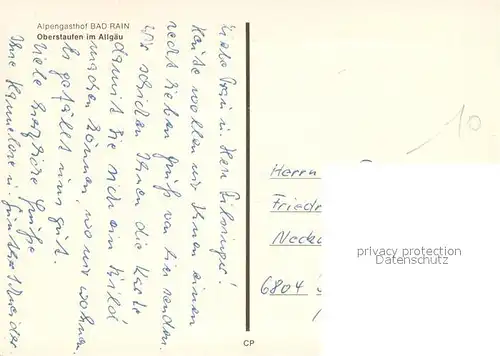 Alpengasthof BAD RAIN
Oberstaufen im Allgäu
Liebe Frau u. Herr
heute wollen wir Ihnen einen
recht lieben Gruß von hier senden.
Wir schicken Ihnen die Karte
damit Sie sich ein Bild
machen können, wo wir wohnen.
Es gefällt uns gut.
Viele herzliche Grüße
Ihre Hannelore u. Günther Schneider
Herrn
Friedr
Necka
6804
10
privacy protection
Datenschutz
CP